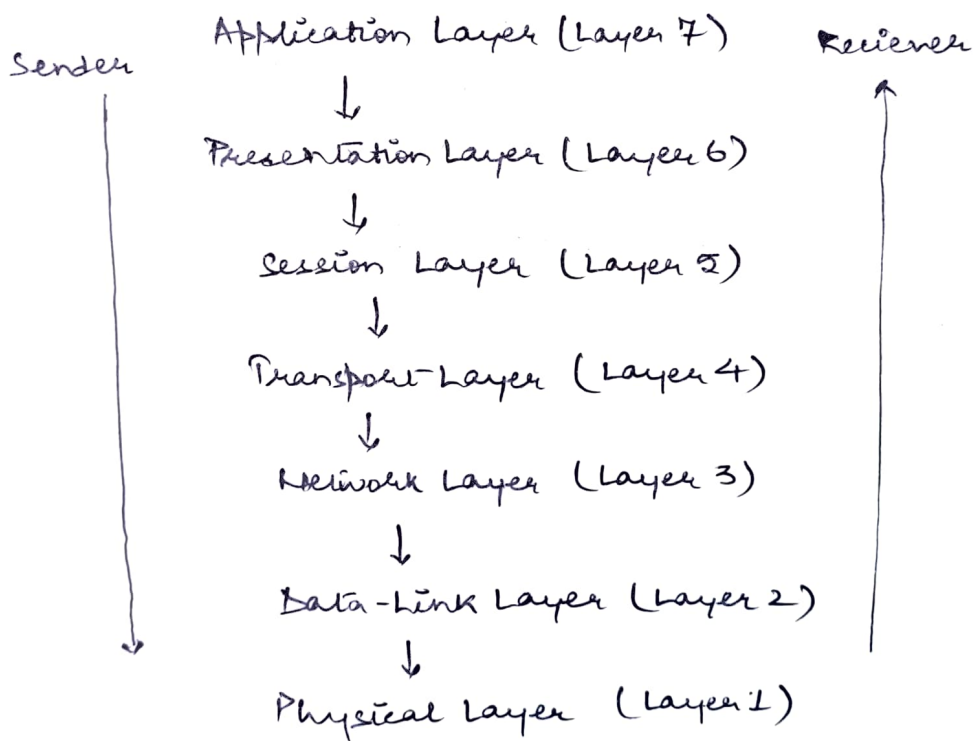 Application Layer (Layer 7)
Sender
Reciever
Presentation Layer (Layer 6)
Session Layer (Layer 5)
Transport Layer (Layer 4)
Network Layer (Layer 3)
Data-Link Layer (Layer 2)
Physical Layer (Layer 1)